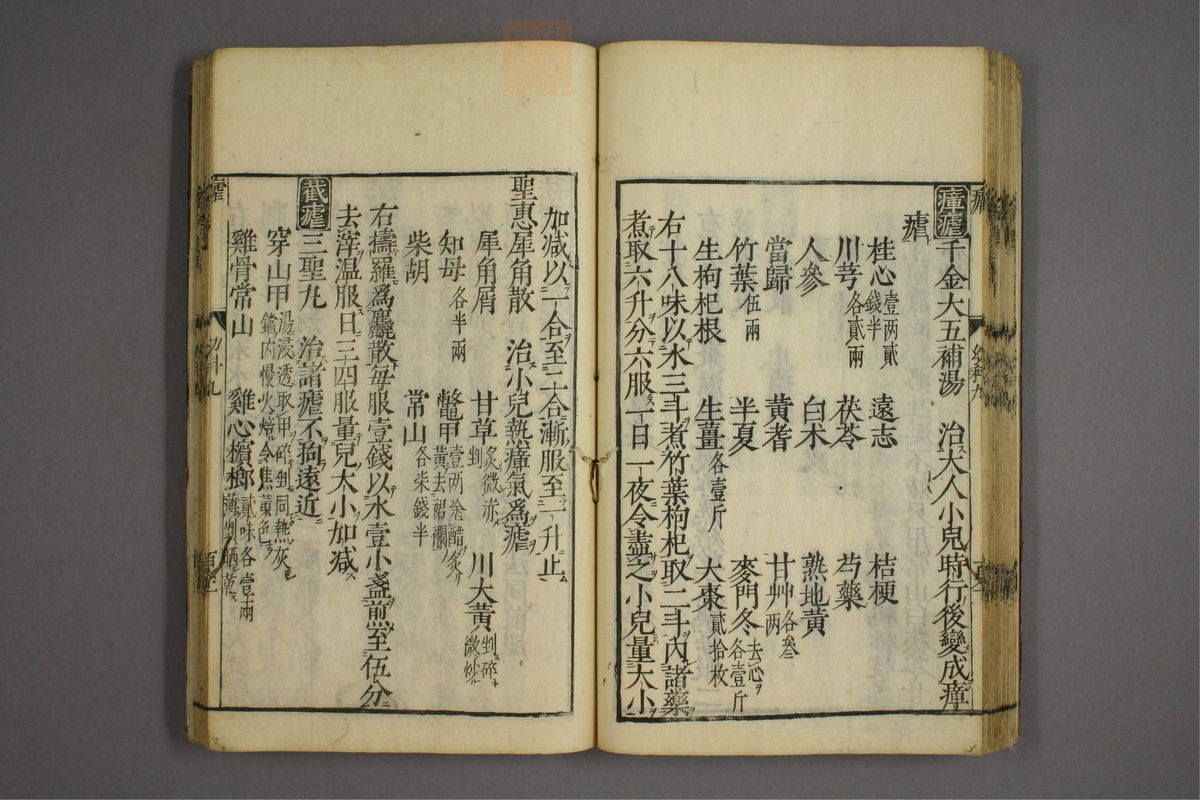 瘴瘧千金大五補湯 治大人小兒時行後變成瘴
瘧
桂心壹两貳錢半 遠志 桔梗
川芎各貳兩 茯苓 芍藥
人參 白朮 熟地黃
當歸 黃耆 甘艸各叄两
竹葉伍兩 半夏 麥門冬去心各壹斤
生枸杞根 生薑各壹斤 大棗貳拾枚
右十八味以水三斗煮竹葉枸杞取二斗內諸藥
煮取六升分六服一日一夜令盡之小兒量大小
加減以一合至二合漸服至一升止
聖惠犀角散 治小兒熱瘴氣爲瘧
犀角屑 甘草炙微赤剉 川大黃剉碎微炒
知母各半兩 鼈甲壹两塗醋炙黃去裙襴
柴胡 常山各柒錢半
右擣羅爲麤散每服壹錢以水壹小盞煎至伍分
去滓温服日三四服量兒大小加減
截瘧三聖丸 治諸瘧不拘遠近
穿山甲湯浸透取甲碎剉同熱灰鐺內慢火燒令焦黃色
雞骨常山 雞心檳榔貳味各壹兩薄剉晒乾